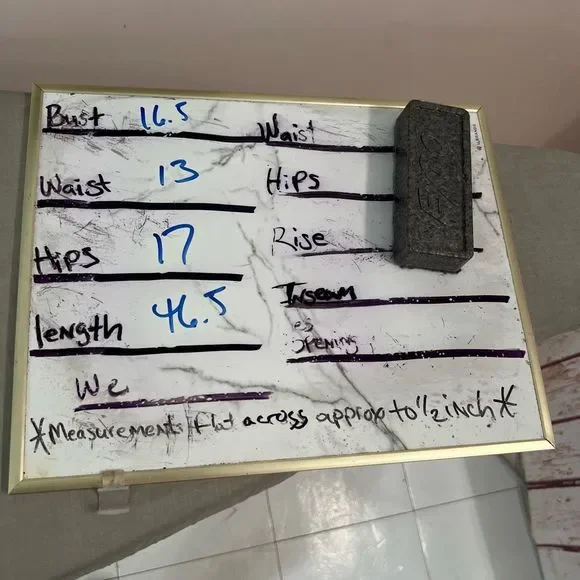 Bust 16.5
Waist 13
Hips 17
length 46.5
We
Waist
Hips
Rise
Inseam
es
opening
*Measurements flat across approx to 1/2 inch*
EXPO